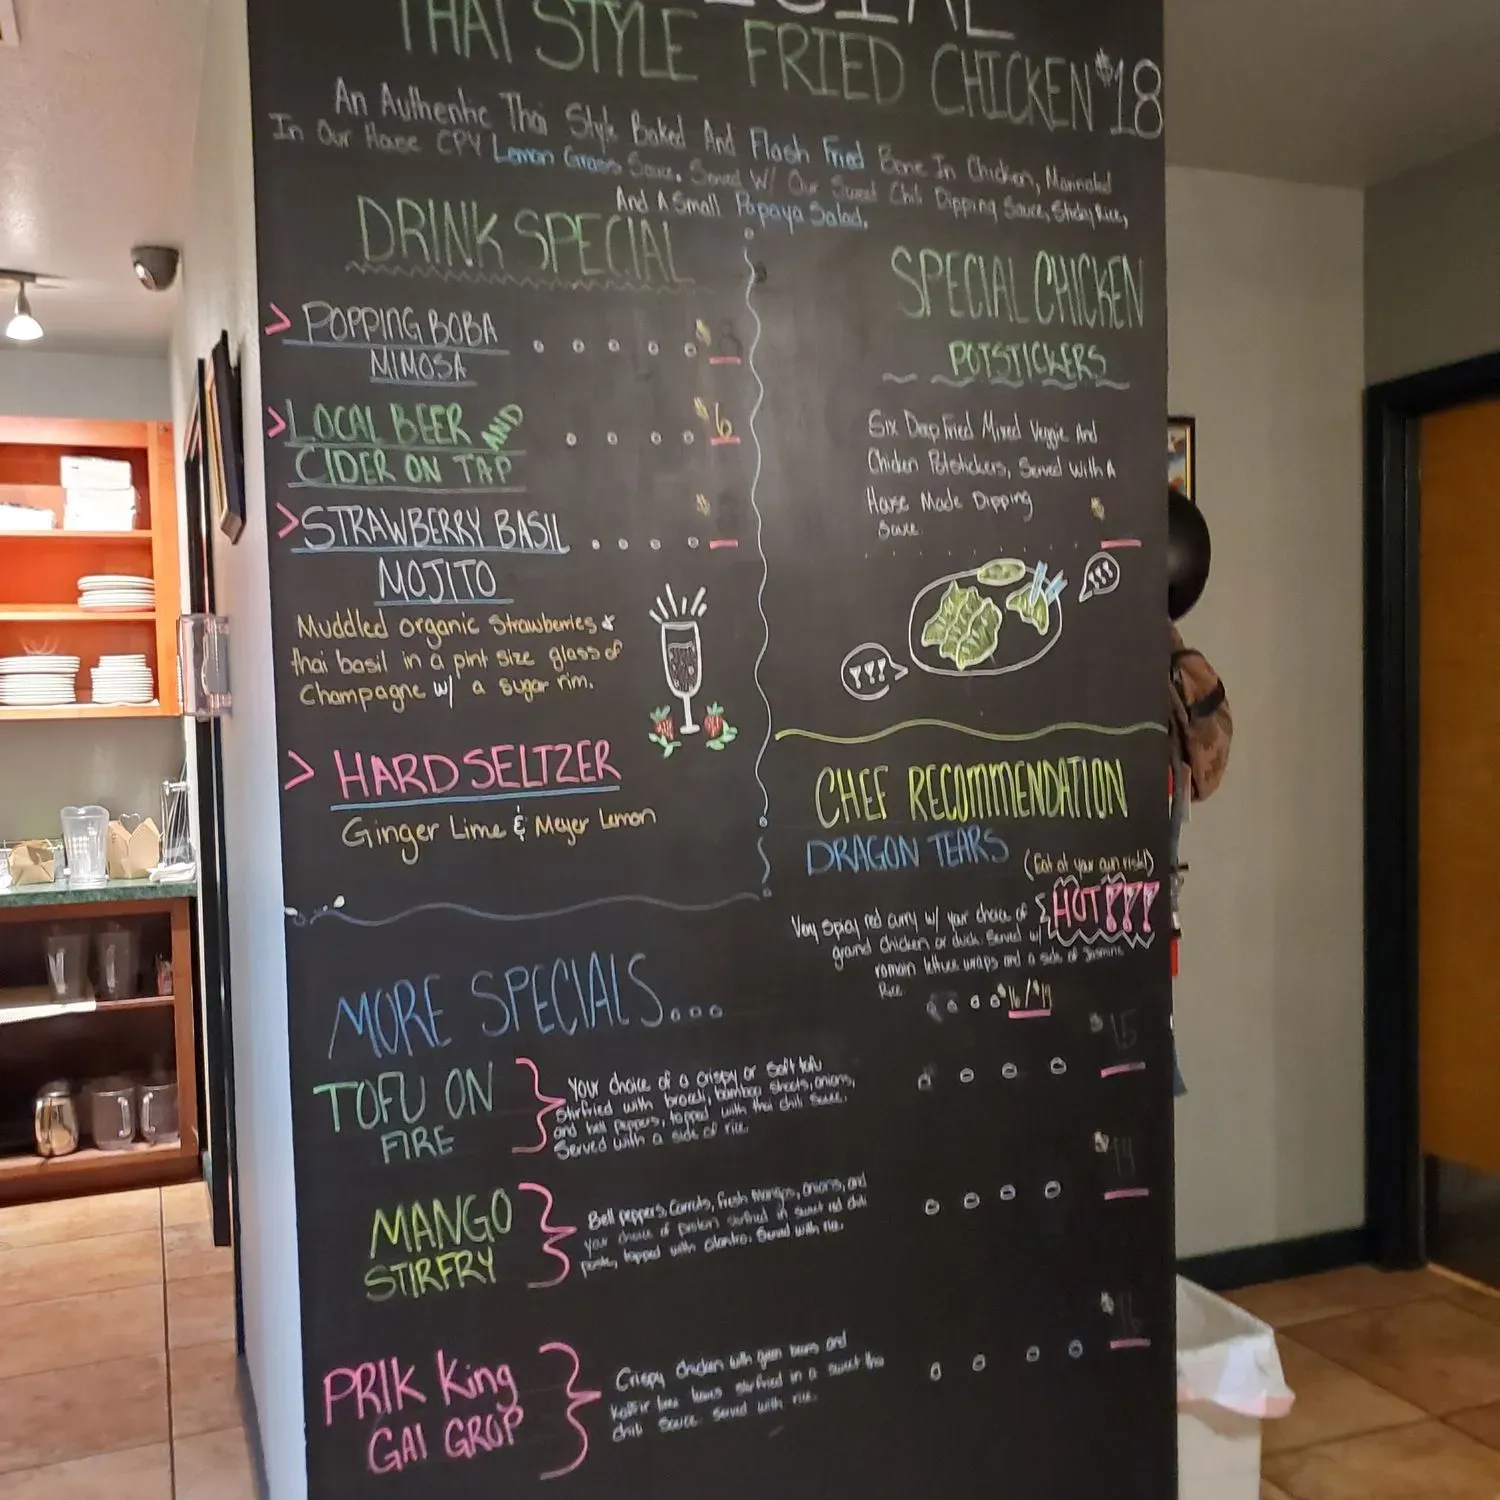 THAI STYLE FRIED CHICKEN $18
An Authentic Thai Style Baked And Flash Fried Bone In Chicken, Marinated
In Our House CPY Lemon Grass Sauce. Served W/ Our Sweet Chili Dipping Sauce, Sticky Rice,
And A Small Papaya Salad.
DRINK SPECIAL
> POPPING BOBA
MIMOSA
$
> LOCAL BEER AND
CIDER ON TAP
$6
> STRAWBERRY BASIL
MOJITO
$
Muddled organic strawberries &
thai basil in a pint size glass of
Champagne w/ a sugar rim.
> HARD SELTZER
Ginger Lime & Meyer Lemon
SPECIAL CHICKEN
POTSTICKERS
Six Deep Fried Mixed Veggie And
Chicken Potstickers, Served With A
House Made Dipping
Sauce.
$
CHEF RECOMMENDATION
DRAGON TEARS
(Eat at your own risk!)
HOT!!!
Very spicy red curry w/ your choice of
ground chicken or duck. Served w/
romain lettuce wraps and a side of Jasmine
Rice.
$16/$19
MORE SPECIALS...
TOFU ON
FIRE
Your choice of a crispy or soft tofu
stirfried with brocoli, bamboo shoots, onions,
and bell peppers, topped with thai chili sauce.
Served with a side of rice.
$15
MANGO
STIRFRY
Bell peppers, Carrots, fresh mangos, onions, and
your choice of protein stirfried in sweet red chili
paste, topped with cilantro. Served with rice.
$
PRIK King
GAI GROP
Crispy chicken with green beans and
kaffir lime leaves stirfried in a sweet thai
chili sauce. Served with rice.
$